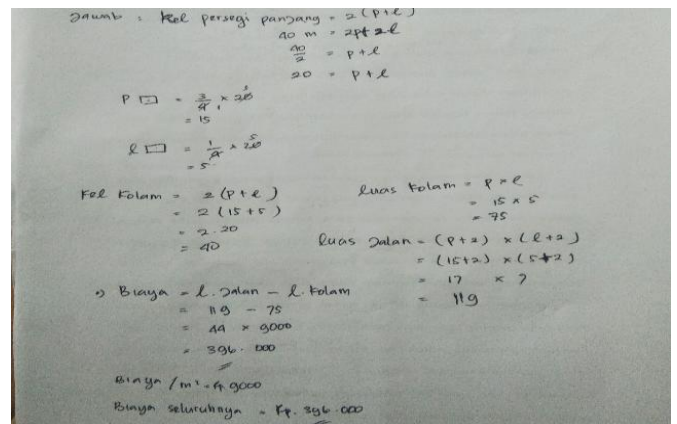 Jawab : Kel persegi panjang = 2 (p+l)
40 m = 2p+2l
40/2 = p+l
20 = p+l
P ▭ = 3/4 × 20 5
1
= 15
l ▭ = 1/4 × 20 5
= 5
Kel Kolam = 2(p+l)
= 2 (15+5)
= 2.20
= 40
luas kolam = p×l
= 15 × 5
= 75
luas Jalan = (p+2) × (l+2)
= (15+2) × (5+2)
= 17 × 7
= 119
Biaya = l. Jalan - l. kolam
= 119 - 75
= 44 × 9000
= 396.000
Biaya /m² = Rp 9000
Biaya seluruhnya = Rp. 396.000